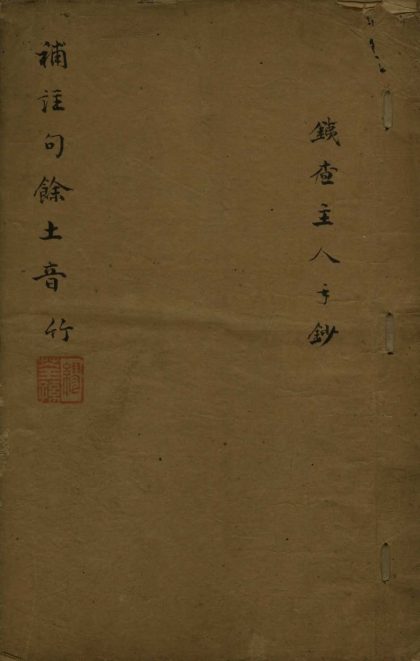 鐵査主人手鈔
補註句餘土音 竹